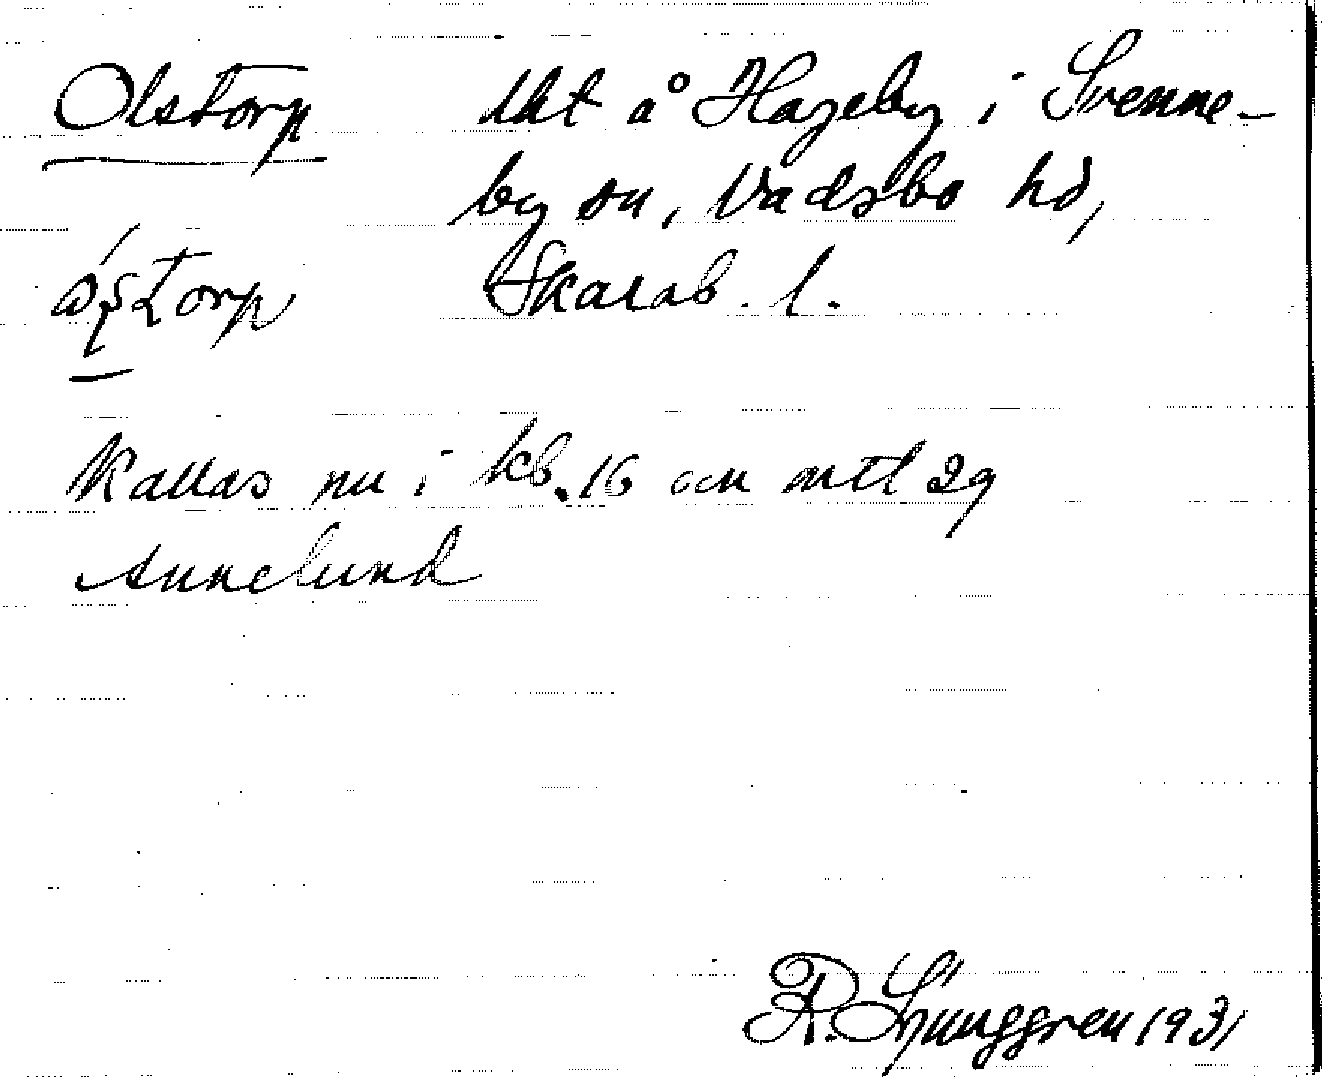 Olstorp lht å Hageby i Svenne-
by sn, Vadsbo hd,
óstorp Skarab. l.
Kallas nu i kb. 16 och mtl 29
Annelund
R. Ljunggren 1931